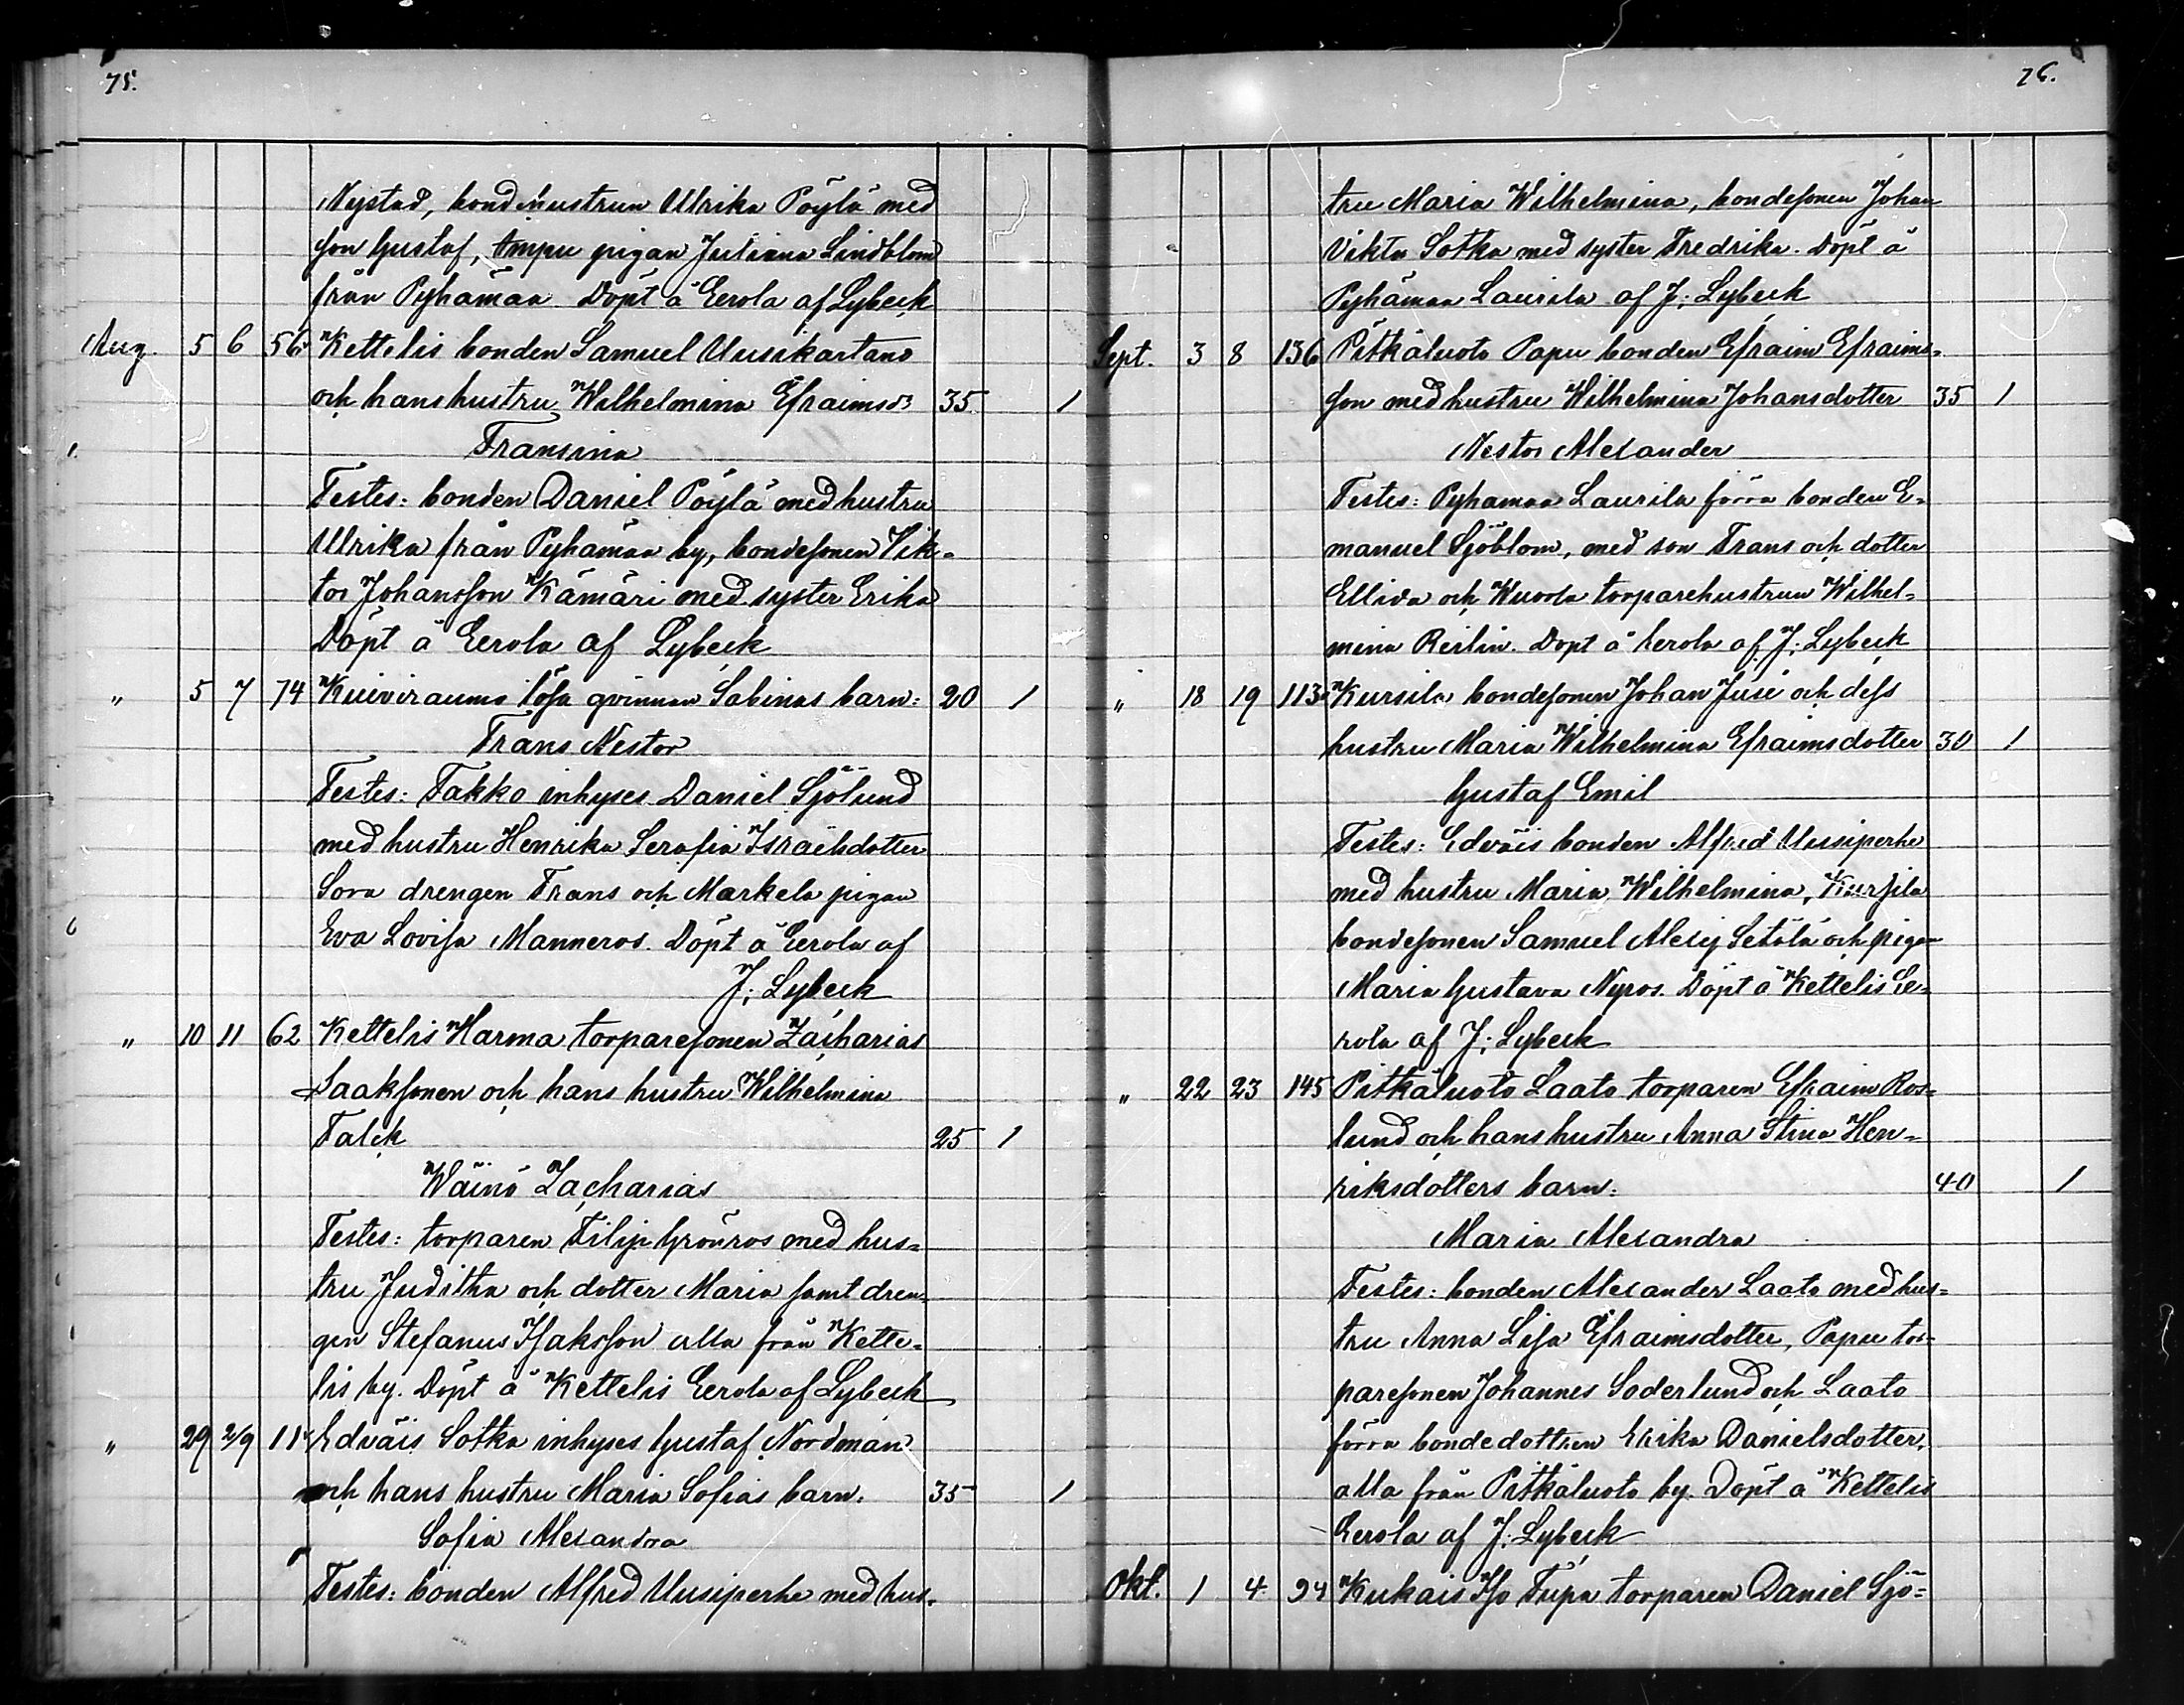 75.
Nystad, bondhustrun Ulrika Pöylä med
son Gustaf, Ampu pigan Juliana Lindblom
från Pyhämaa Döpt å Eerola af Lybeck
Aug. 5 6 56 Kettelis bonden Samuel Uusikartano
och hans hustru Wilhelmina Efraimsdr 35 1
Fransina
Testes: bonden Daniel Pöylä med hustru
Ulrika från Pyhämaa by, bondesonen Vik-
tor Johansson Kämäri med syster Erika
Döpt å Eerola af Lybeck
" 5 7 74 Kuiviraumo lösa qvinnan Sabinas barn: 20 1
Frans Nestor
Testes: Takko inhyses Daniel Sjölund
med hustru Henrika Serafia Israelsdotter
Sora drengen Frans och Markela pigan
Eva Lovisa Manneros. Döpt å Eerola af
J. Lybeck
" 10 11 62 Kettelis Harma torparesonen Zacharias
Isaksonen och hans hustru Wilhelmina
Falck 25 1
Wäinö Zacharias
Testes: torparen Filip Grönros med hus-
tru Juditha och dotter Maria samt dren-
gen Stefanus Isaksson alla från Kette-
lis by. Döpt å Kettelis Eerola af Lybeck
" 29 2/9 11 Edväis Sotka inhyses Gustaf Nordman
och hans hustru Maria Sofias barn: 35 1
Sofia Alexandra
Testes: bonden Alfred Uusiperhe med hus-
76.
tru Maria Wilhelmina, bondesonen Johan
Viktor Sotka med syster Fredrika. Döpt å
Pyhämaa Laurila af J. Lybeck
Sept. 3 8 136 Pitkäluoto Papu bonden Efraim Efraims-
son med hustru Wilhelmina Johansdotter 35 1
Nestor Alexander
Testes: Pyhämaa Laurila förra bonden E-
manuel Sjöblom, med son Frans och dotter
Ellida och Kuorla torparehustrun Wilhel-
mina Reilin. Döpt å Eerola af J. Lybeck
" 18 19 113 Kursila bondesonen Johan Jusi och dess
hustru Maria Wilhelmina Efraimsdotter 30 1
Gustaf Emil
Testes: Edväis bonden Alfred Uusiperhe
med hustru Maria Wilhelmina, Kursila
bondesonen Samuel Alexij Setälä och pigan
Maria Gustava Nyros. Döpt å Kettelis Ee-
rola af J. Lybeck
" 22 23 145 Pitkäluoto Laato torparen Efraim Ros-
lund och hans hustru Anna Stina Hen-
riksdotters barn: 40 1
Maria Alexandra
Testes: bonden Alexander Laato med hus-
tru Anna Lisa Efraimsdotter, Papu tor-
paresonen Johannes Söderlund och Laato
förra bondedottren Erika Danielsdotter,
alla från Pitkäluoto by. Döpt å Kettelis
Eerola af J. Lybeck
Okt. 1 4 94 Kukais Iso Tupa torparen Daniel Sjö-